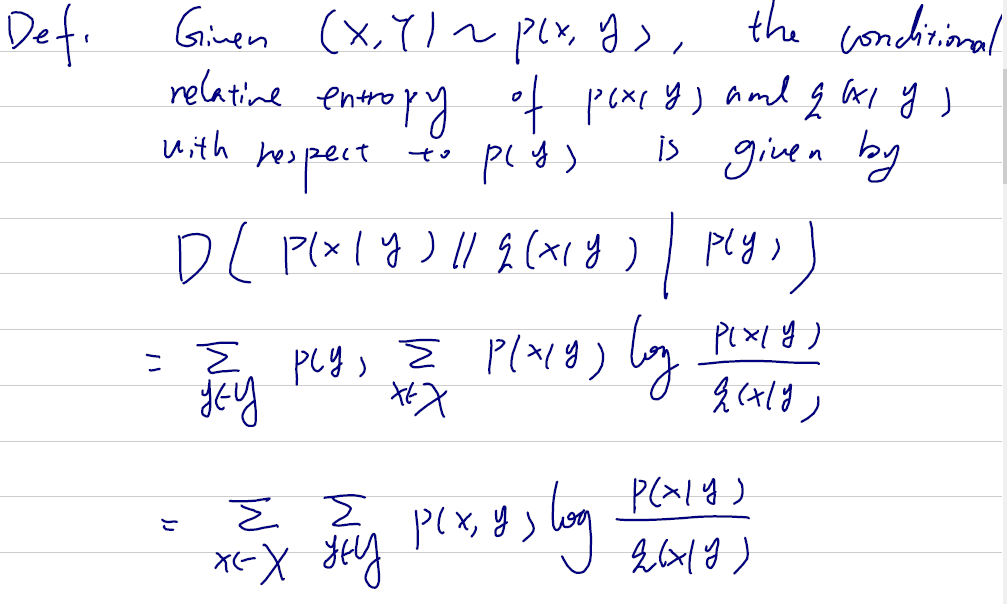 Def. Given (X,Y) ~ p(x, y), the conditional
relative entropy of p(x|y) and q(x|y)
with respect to p(y) is given by
D( p(x|y) || q(x|y) | p(y) )
= Σ_{y∈𝒴} p(y) Σ_{x∈𝒳} p(x|y) log p(x|y) / q(x|y)
= Σ_{x∈𝒳} Σ_{y∈𝒴} p(x, y) log p(x|y) / q(x|y)